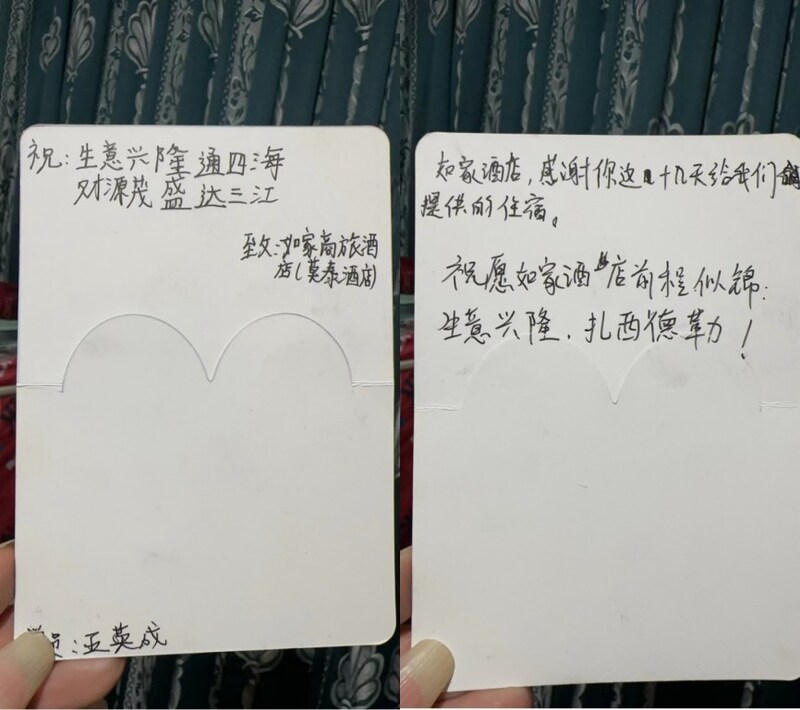 祝:生意兴隆通四海
财源茂盛达三江
致:如家商旅酒
店(莫泰酒店)
员:王英成
如家酒店,感谢你这几十几天给我们
提供的住宿。
祝愿如家酒店前程似锦:
生意兴隆.扎西德勒!